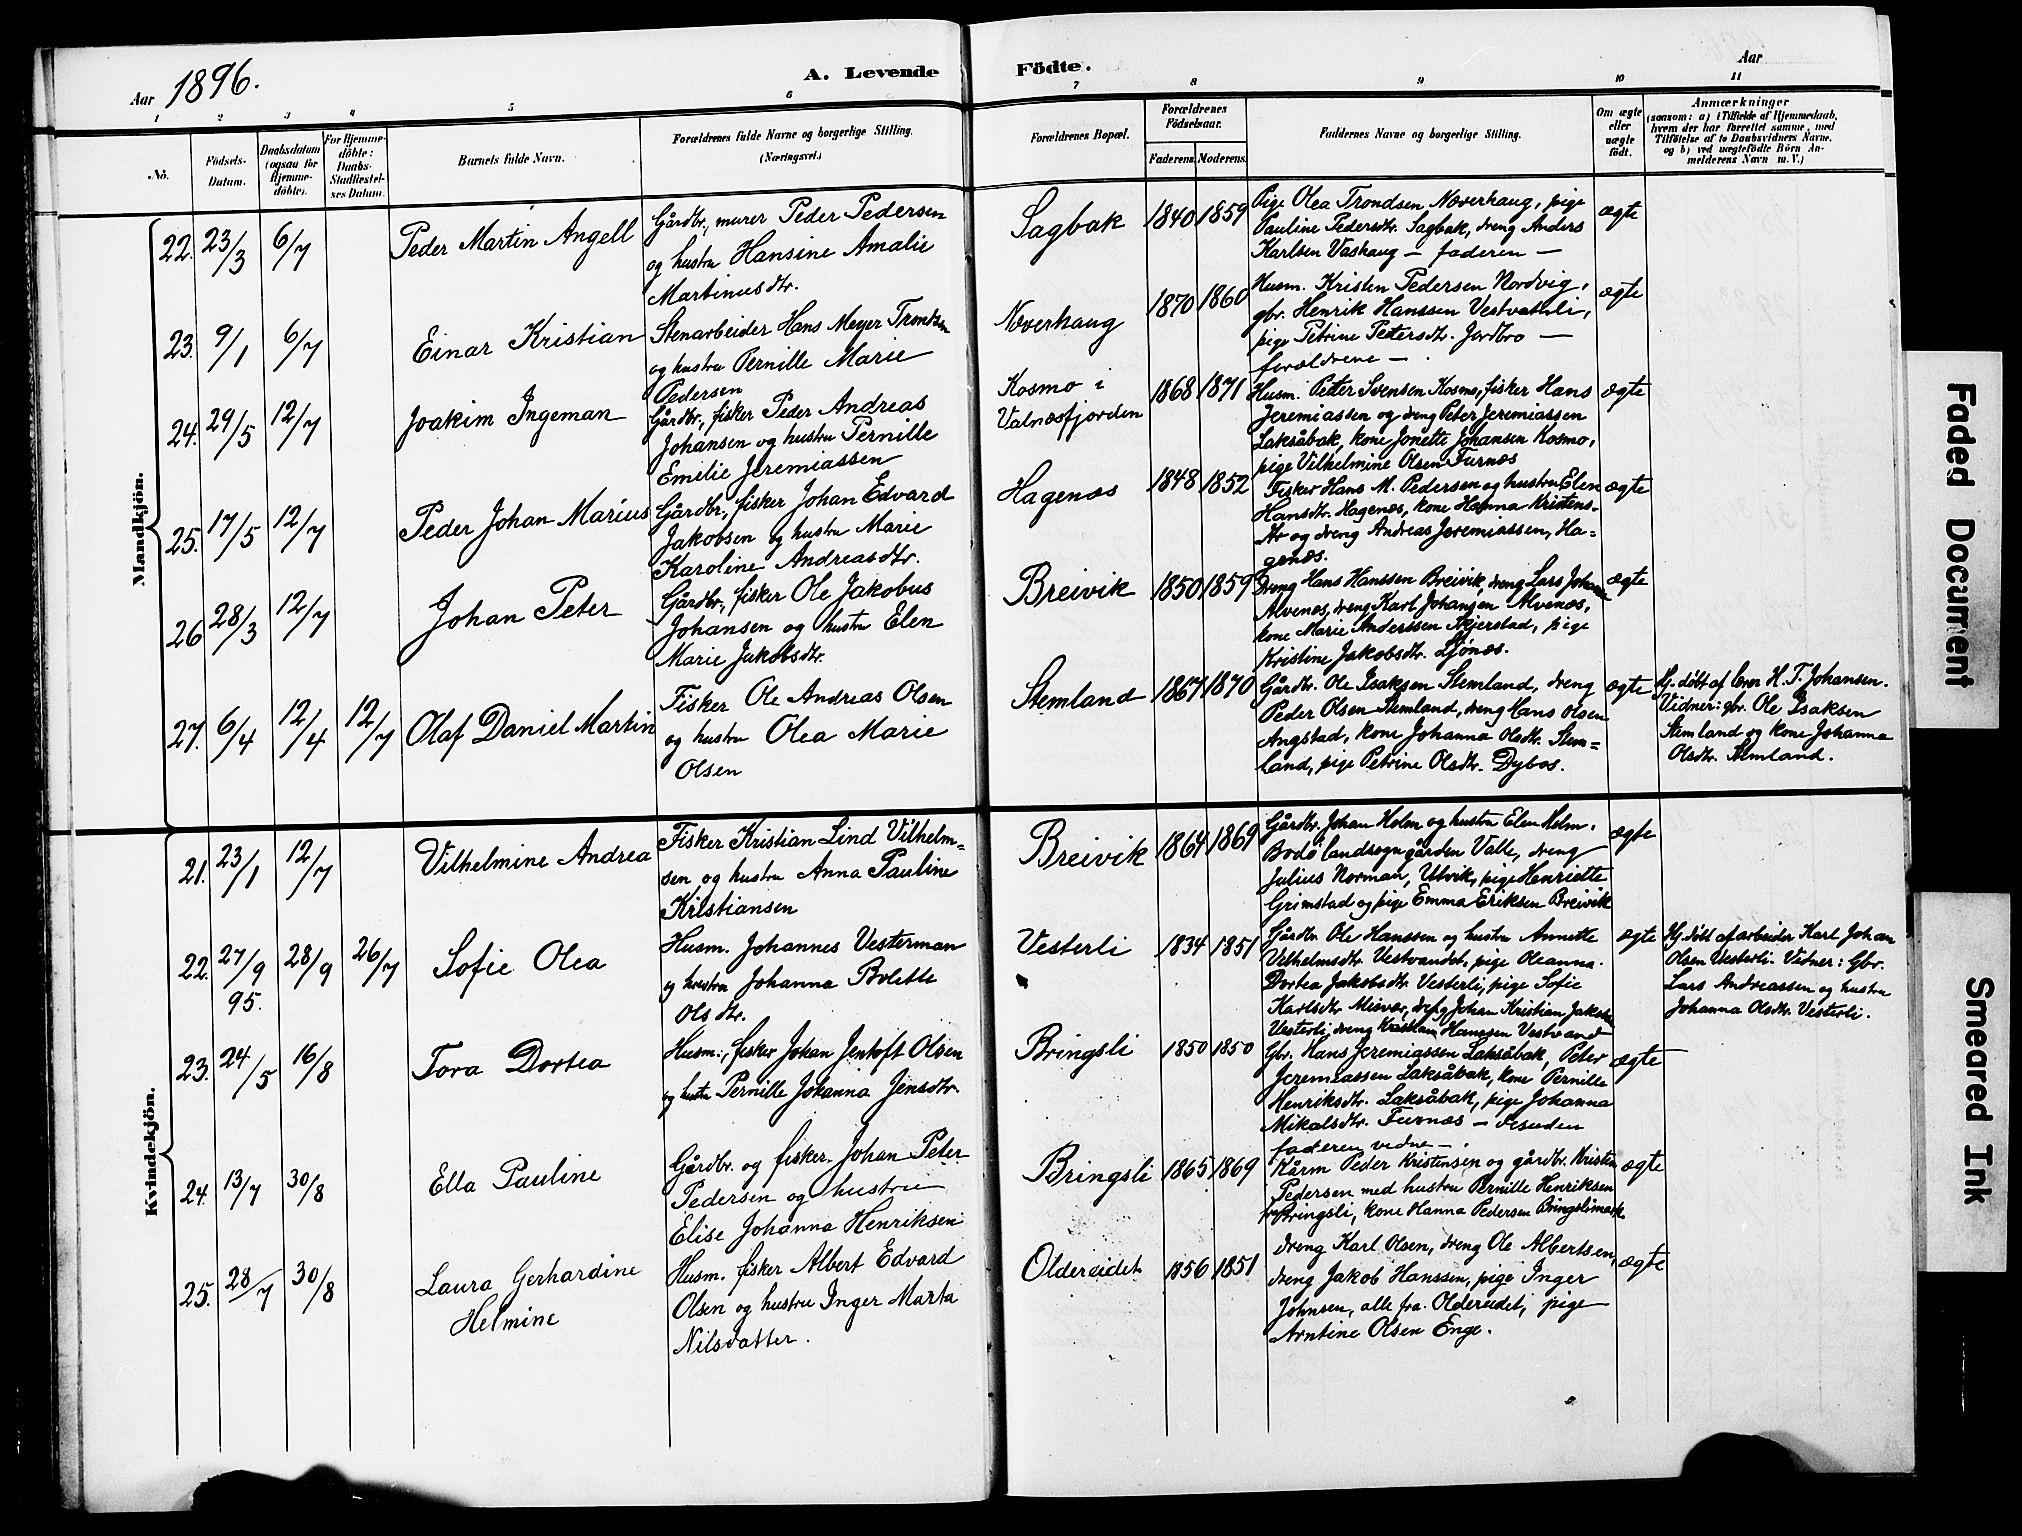 Aar 1896.
A. Levende
1 2 3 4 5 6
No.
Födsels-
Datum.
Daabsdatum
(ogsaa for
Hjemme-
döbte).
For Hjemme-
döbte:
Daabs-
Stadfæstel-
ses Datum.
Barnets fulde Navn.
Forældrenes fulde Navne og borgerlige Stilling.
(Næringsvei.)
Mandkjön.
22. 23/3 6/7
Peder Martin Angell
Gårdbr., murer Peder Pedersen
og hustru Hansine Amalie
Martinusdtr.
23. 9/1 6/7
Einar Kristian
Stenarbeider Hans Meyer Trondsen
og hustru Pernille Marie
Pedersen
24. 29/5 12/7
Joakim Ingeman
Gårdbr., fisker Peder Andreas
Johansen og hustru Pernille
Emelie Jeremiassen
25. 17/5 12/7
Peder Johan Marius
Gårdbr., fisker Johan Edvard
Jakobsen og hustru Marie
Karoline Andreasdtr.
26 28/3 12/7
Johan Peter
Gårdbr., fisker Ole Jakobus
Johansen og hustru Elen
Marie Jakobsdtr.
27. 6/4 12/4 12/7
Olaf Daniel Martin
Fisker Ole Andreas Olsen
og hustru Olea Marie
Olsen
Kvindekjön.
21. 23/1 12/7
Vilhelmine Andrea
Fisker Kristian Lind Vilhelm=
sen og hustru Anna Pauline
Kristiansen
22. 27/9 95. 28/9 26/7
Sofie Olea
Husm. Johannes Vesterman
og hustru Johanna Bolette
Olsdtr.
23. 24/5 16/8
Tora Dortea
Husm., fisker Johan Jentoft Olsen
og hustru Pernille Johanna Jensdtr.
24. 13/7 30/8
Ella Pauline
Gårdbr. og fisker Johan Peter
Pedersen og hustru
Elise Johanna Henriksen
25. 28/7 30/8
Laura Gerhardine
Helmine
Husm. fisker Albert Edvard
Olsen og hustru Inger Marta
Nilsdatter.
Födte.
Aar
7 8 9 10 11
Forældrenes Bopæl.
Forældrenes
Födselsaar.
Faderens. Moderens.
Faddernes Navne og borgerlige Stilling.
Om ægte
eller
uægte
født.
Anmærkninger
(saasom: a) i Tilfælde af Hjemmedaab,
hvem der har forrettet samme, med
Tilføielse af to Daabsvidners Navne.
og b) ved uægtefödte Börn An-
melderens Navn m. V.)
Sagbak 1840 1859
Pige Olea Trondsen Næverhaug, pige
Pauline Pedersdtr. Sagbak, dreng Anders
Karlsen Vashaug — faderen —
ægte
Næverhaug 1870 1860
Husm. Kristen Pedersen Nordvig,
gbr. Henrik Hanssen Vestvatnli,
pige Petrine Petersdtr. Jordbro —
forældrene —.
ægte
Kosmo i
Valnesfjorden
1868 1871
Husm. Peter Svensen Kosmo, fisker Hans
Jeremiassen og dreng Peter Jeremiassen
Laksåbak, kone Jonette Johansen Kosmo,
pige Vilhelmine Olsen Furnæs
ægte
Hagenæs 1848 1852
Fisker Hans M. Pedersen og hustru Elen
Hansdtr. Hagenæs, kone Hanna Kristens-
dtr og dreng Andreas Jeremiassen, Ha=
genæs.
ægte
Breivik 1850 1859
Dreng Hans Hanssen Breivik, dreng Lars Johan
Alvenæs, dreng Karl Johansen Alvenæs,
kone Marie Anderssen Skjerstad, pige
Kristine Jakobsdtr. Ljønæs.
ægte
Stemland 1867 1870
Gårdbr. Ole Isaksen Stemland, dreng
Peder Olsen Stemland, dreng Hans Olsen
Angstad, kone Johanna Olsdtr. Stem=
land, pige Petrine Olsdtr. Dybos.
ægte
Hj. døbt af H. T. Johansen.
Vidner: gbr. Ole Isaksen
Stemland og kone Johanna
Olsdtr. Stemland.
Breivik 1864 1869
Gårdbr. Johan Holm og hustru Elen Holm,
Bodø landsogn gården Valle, dreng
Julius Norman, Utvik, pige Henriette
Grimstad og pige Emma Eriksen Breivik
ægte
Vesterli 1834 1851
Gårdbr. Ole Hanssen og hustru Annette
Vilhelmsdtr. Vestvandet, pige Oleanna
Dortea Jakobsdtr. Vesterli, pige Sofie
Karlsdtr Misvær, dreng Johan Kristian Jakobs
Vesterli, dreng Kristian Hanssen Vestvand
ægte
Hj. døbt af arbeider Karl Johan
Olsen Vesterli. Vidner: Gbr.
Lars Andreassen og hustru
Johanna Olsdtr. Vesterli.
Bringsli 1850 1850
Gbr. Hans Jeremiassen Laksåbak, Peter
Jeremiassen Laksåbak, kone Pernille
Henriksdtr. Laksåbak, pige Johanna
Mikalsdtr. Furnæs — desuden
faderen vidne —.
ægte
Bringsli 1865 1869
Kårm Peder Kristensen og gårdbr. Kristen
Pedersen med hustru Pernille Henriksen
Bringsli, kone Hanna Pedersen Bringslimark
ægte
Oldereidet 1856 1851
dreng Karl Olsen, dreng Ole Albertsen,
dreng Jakob Hanssen, pige Inger
Johnsen, alle fra Oldereidet, pige
Arntine Olsen Enge.
ægte
Faded Document
Smeared Ink